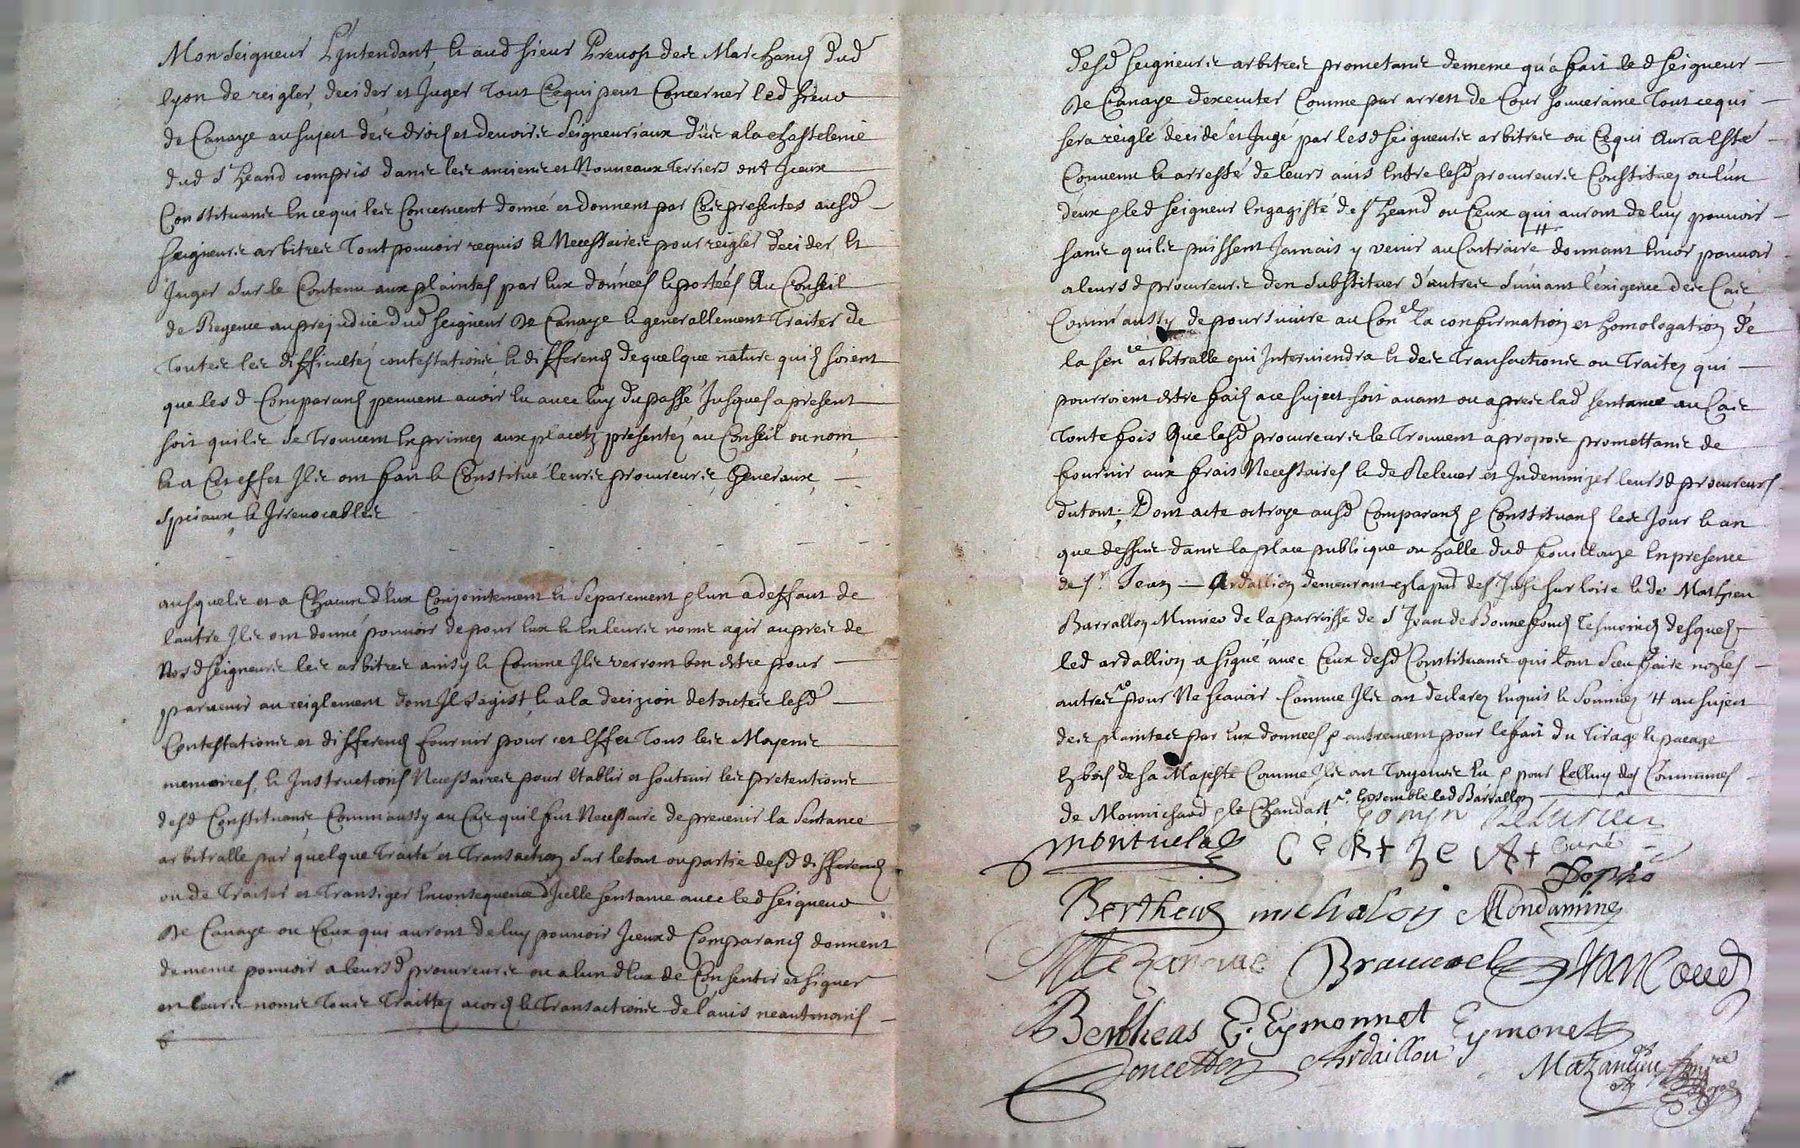 Monseigneur L'Jntendant, & aud sieur Prevost des Marchands dud
lyon de reigler, decider et Juger Tout Cequi peut Concerner led sieur
de Canaye au suject des droits et devoirs Seigneuriaux dus a la chastelenie
dud St heand compris dans les anciens et Nouveaux Terriers ont Jceux
Constituants En cequi les Concernent donné et donnent par Ces presentes ausd
seigneurs arbitres Tout pouvoir requis & Necessaires pour reigler decider &
Juger Sur le Contenu aux plaintes par Eux données & portées Au Conseil
de Regence au prejudice dud Seigneur De Canaye & generallement Traiter de
Toutes les difficultez contestations, & differends de quelque nature quils soient
que lesd Comparans peuvent avoir Eu avec luy du passé Jusques a present
soit quils se Trouvent Exprimez aux placetz presentez au Conseil ou non,
& a Cet effet Jls ont fait & Constitué leurs procureurs, Generaux,
Speciaux & Jrrevocables
ausquels et a Chacun d'Eux Conjointement & Separement & lun a deffaut de
lautre Jls ont donné pouvoir de pour Eux & En leurs noms agir aupres de
Nosd Seigneurs les arbitres ainsy & Comme Jls verront bon Estre pour
parvenir au reiglement dont Jl S'agist, & a la decizion de toutes lesd
Contestations et differends fournir pour cet Effet Tous les Moyens
memoires, & Instructions Necessaires pour Etablir et soutenir les pretentions
desd Constituans, Comm'aussy au Cas quil fut Necessaire de prevenir la Sentance
arbitralle par quelque Traité et Transaction Sur le tout ou partie desd differends
ou de Traiter et Transiger En consequence d'Jcelle sentance avec led Seigneur
De Canaye ou Ceux qui auront de luy pouvoir Jceuxd Comparans donnent
de meme pouvoir a leursd procureurs ou a lun d'Eux de Consentir et signer
en leurs noms Tous Traittez acords & Transactions de l'avis neantmoins
desd Seigneurs arbitres prometans de meme qu'a fait led Seigneur
De Canaye d'executer Comme par arrest de Cour souveraine Tout cequi
sera reiglé decidé et Jugé par lesd Seigneurs arbitres ou Cequi Aura Esté
Convenu & arresté de leurs avis Entre lesd procureurs Constituez ou l'un
d'eux & led Seigneur Engagiste de St heand ou Ceux qui auront de luy pouvoir
sans quils puissent Jamais y venir au Contraire H donnant Encor pouvoir
a leursd procureurs d'en Substituer d'autres Suivant l'exigence des Cas
Comm'aussy de poursuivre au Conel la confirmation et homologation de
la Sence arbitralle qui Interviendra & des Transactions ou Traitez qui
pourroient Estre faits a ce sujet soit avant ou apres lad Sentance au Cas
Toutefois Que lesd procureurs le Trouvent a propos promettans de
fournir aux frais Necessaires & de Relever et Indemnizer leursd procureurs
du tout; Dont acte octroyé ausd Comparans & Constituans les Jour & an
que dessus dans la place publique ou halle dud fouillouze En presence
de Sr. Jean — Ardallion demeurant en la par de St Just sur loire & de Mathieu
Barrallon Minieo de la parroisse de St Jean de Bonnefond Tesmoins desquels
led ardallion a signé avec Ceux desd Constituans qui l'ont Sceu faire non les
autres pour Ne Scavoir Comme Jls ont declarez Enquis & Sommez H au sujet
des plaintes par Eux données & autrement pour le fait du Tirage & pacage
Es bois de Sa Majesté Comme Jls ont Toujours Eu & pour Celluy des Communes
de Monnichard & le Chandart. Ensemble led Barrallon
montuclas C C R + h e A + Curé
Bertheas michalon Mondamine
Mazancieu Brunoel hancoud
Bertheas E. Eymonnet Eymonet
Poncetton Ardaillou Mazancieu